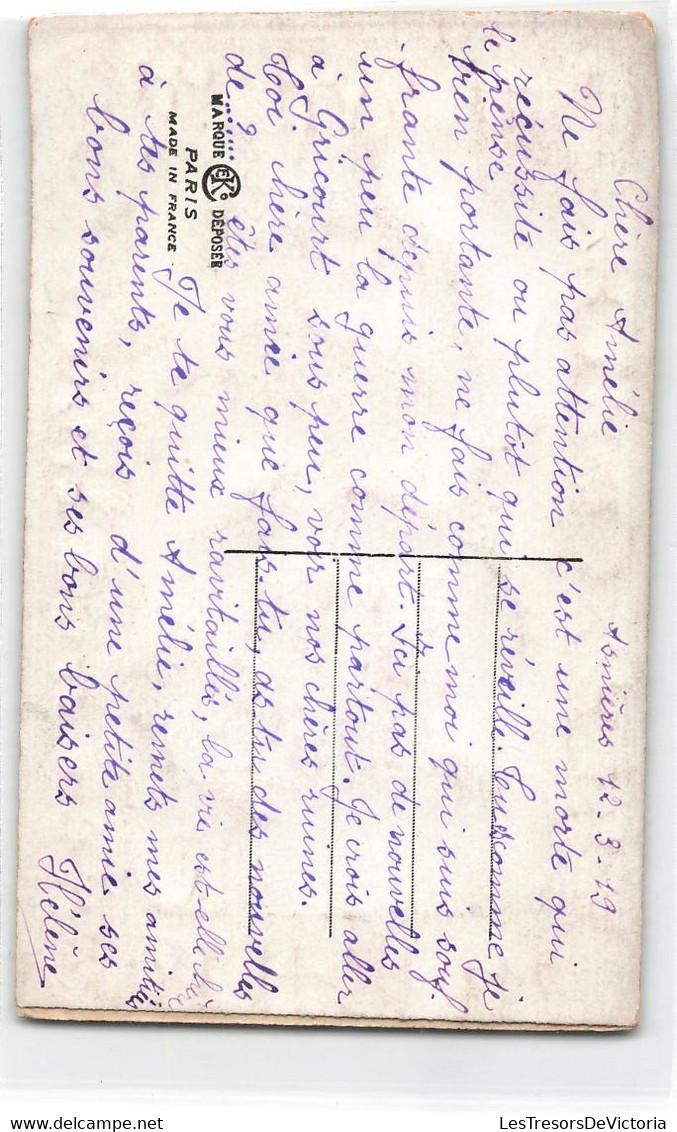 Asnières 12-3-19
Chère Amélie
Ne fais pas attention c'est une morte qui
récussite ou plutôt qui se réveille. Tu comme je
le pense
bien portante, ne fais comme moi qui suis souf-
frante depuis mon départ. Ici pas de nouvelles
un peu la guerre comme partout. Je crois aller
à Gricourt sous peu, voir nos chères ruines.
Toi chère amie que fais-tu, as tu des nouvelles
de ......? êtes vous mieux ravitailler, la vie est-elle
Je te quitte Amélie, remets mes amitiés
à tes parents, reçois d'une petite amie ses
bons souvenirs et ses bons baisers Hélène
MARQUE EKO DEPOSER
PARIS
MADE IN FRANCE
LesTresorsDeVictoria